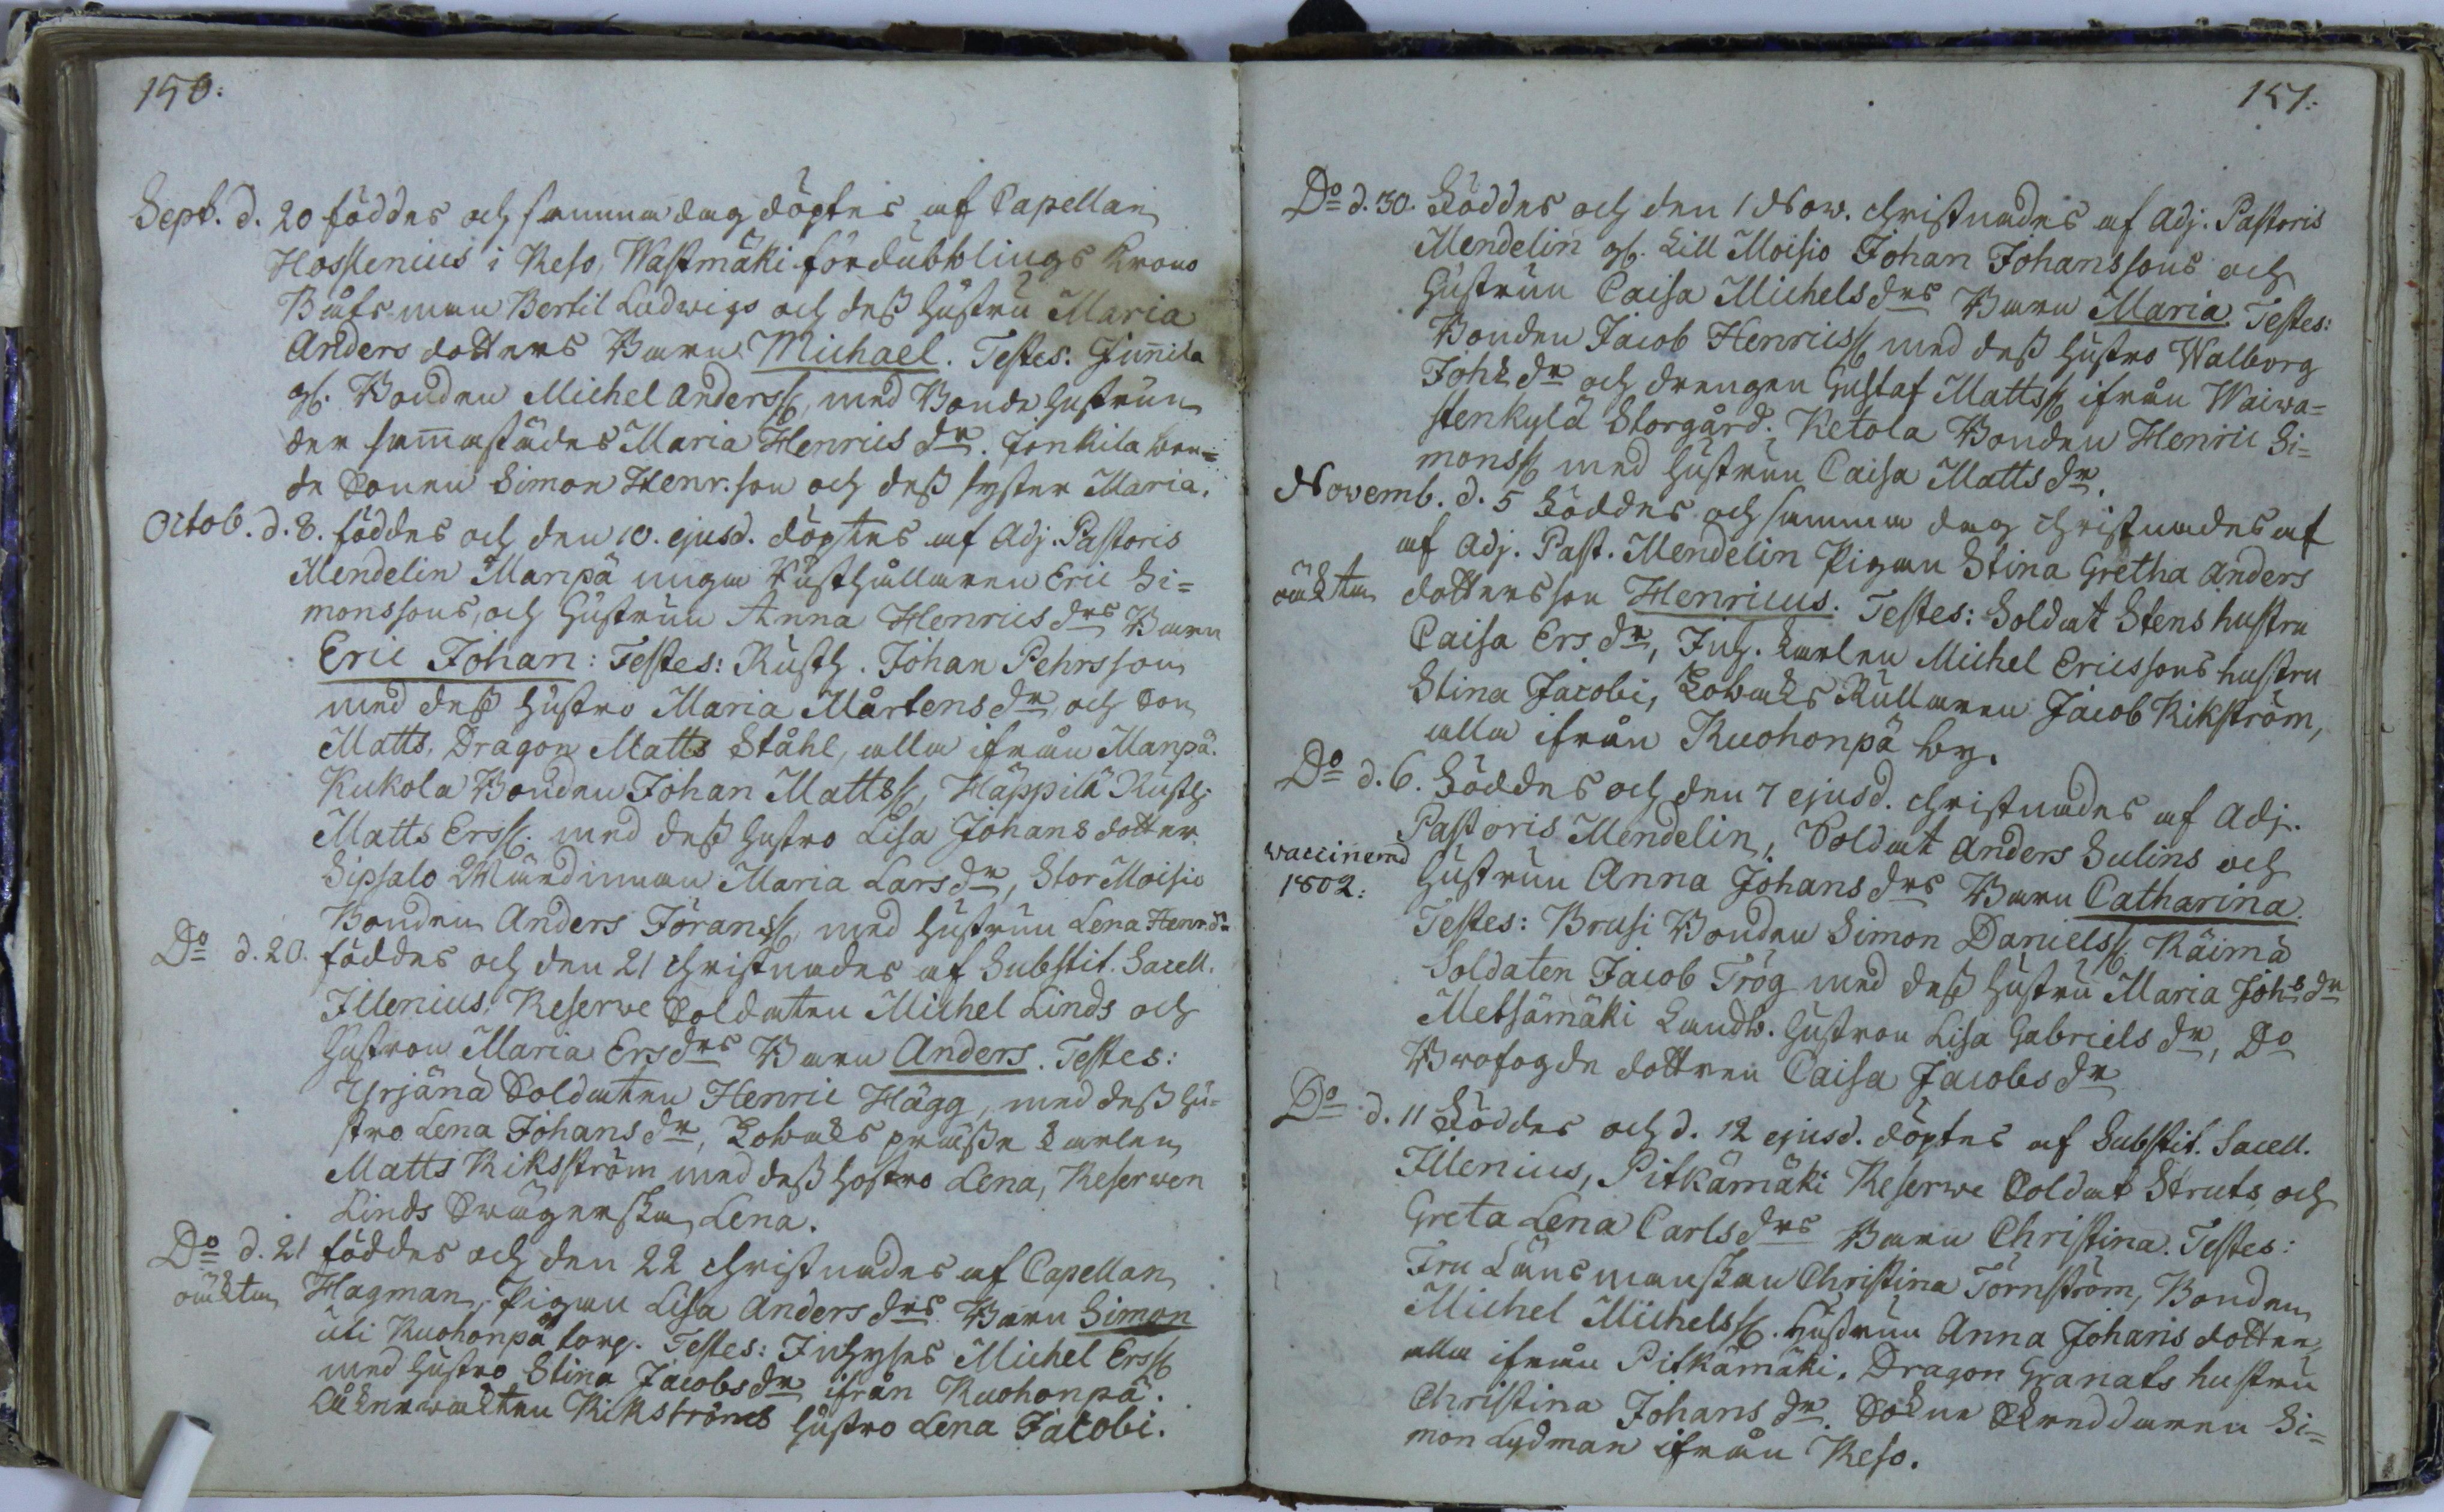 150:
Sept. d. 20 föddes och samma dag döptes af Capellan
Hossenius i Reso, Wastmäki fördubblings Krono
Båtsman Bertil Ludwigs och dess hustru Maria
Anders dotters Barn Michael. Testes: Junnila
gb. Bonden Michel Anderss, med Bonde hustrun
der sam̅astädes Maria Henrics dr. Jonkila bon=
de Sonen Simon Henr.son och dess syster Maria.
Octob. d. 8. föddes och den 10. ejusd. döptes af Adj. Pastoris
Mendelin Manpä unga Rusthållaren Eric Si=
monssons, och hustrun Anna Henrics drs Barn
Eric Johan: Testes: Rusth. Johan Pehrsson
med dess hustro Maria Mårtens dr, och Son
Matts, Dragon Matts Ståhl, alla ifrån Manpä.
Kukola Bonden Johan Mattss, Häppilä Rusth:
Matts Erss. med dess hustro Lisa Johans dotter.
Sipsalo Wärdinnan Maria Lars dr, Stor Moisio
Bonden Anders Joranss, med hustrun Lena Henr. dr
Do d. 20. föddes och den 21 christnades af Substit. Sacell.
Illenius, Reserwe Soldaten Michel Linds och
hustron Maria Ers drs Barn Anders. Testes:
Yrjänä Soldaten Henric Hägg, med dess hu=
stro Lena Johans dr, Tobaks karlen
Matts Rikström med dess hostro Lena, Reserwen
Linds Swägerska Lena.
Do d. 21 föddes och den 22 christnades af Capellan
oäkta Hagman, Pigan Lisa Anders drs Barn Simon
uti Kuohonpä torp. Testes: Inhyses Michel Erss
med hustro Stina Jacobs dr ifrån Kuohonpä.
Rikströms hustro Lena Jacobi.
151:
Do d. 30. Föddes och den 1 Now. christnades af Adj. Pastoris
Mendelin gb. Lill Moisio Johan Johanssons och
hustrun Caisa Michels drs Barn Maria. Testes:
Bonden Jacob Henricss med dess hustro Walborg
Johs dr och drengen Gustaf Mattss ifrån Waiwa=
stenkylä Storgård. Ketola Bonden Henric Si=
monss med hustrun Caisa Matts dr.
Novemb. d. 5 Föddes och samma dag christnades af
af Adj. Past. Mendelin Pigan Stina Gretha Anders
oäkta dottersson Henricus. Testes: Soldat Stens hustru
Caisa Ers dr, Inh. karlen Michel Ericssons hustru
Stina Jacobi, Tobaks Rullaren Jacob Rikström,
alla ifrån Kuohonpä by.
Do d. 6. Föddes och den 7 ejusd. christnades af Adj.
Pastoris Mendelin, Soldat Anders Sulins och
waccinerad hustrun Anna Johans drs Barn Catharina.
1802:
Testes: Brusi Bonden Simon Danielss, Räimä
Soldaten Jacob Trög med dess hustru Maria Johs dr
Metsämäki Landb. hustron Lisa Gabriels dr, Do
Brofogde dottren Caisa Jacobs dr
Do d. 11 Föddes och d. 12 ejusd. döptes af Substit. Sacell.
Illenius, Pitkämäki Reserwe Soldat Struts, och
Greta Lena Carls drs Barn Christina. Testes:
Fru Länsmanskan Christina Törnström, Bonden
Michel Michelss. hustrun Anna Johans dotter,
alla ifrån Pitkämäki. Dragon Granats hustru
Christina Johans dr. Sokne Skreddaren Si=
mon Lydman ifrån Reso.